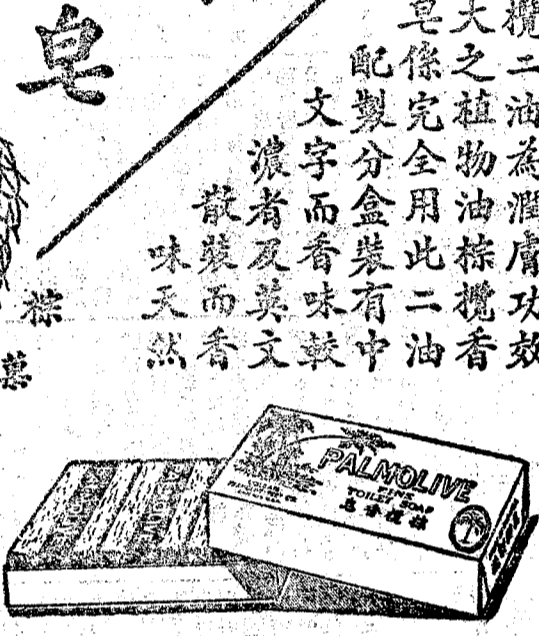 欖二油為潤膚功效
大之植物油棕欖香
皂係完全用此二油
配製分盒裝有中
文字而香味較
濃者及英文
散裝而香
味天然
皂
棕菓
PALMOLIVE
TOILET SOAP
皂香欖棕